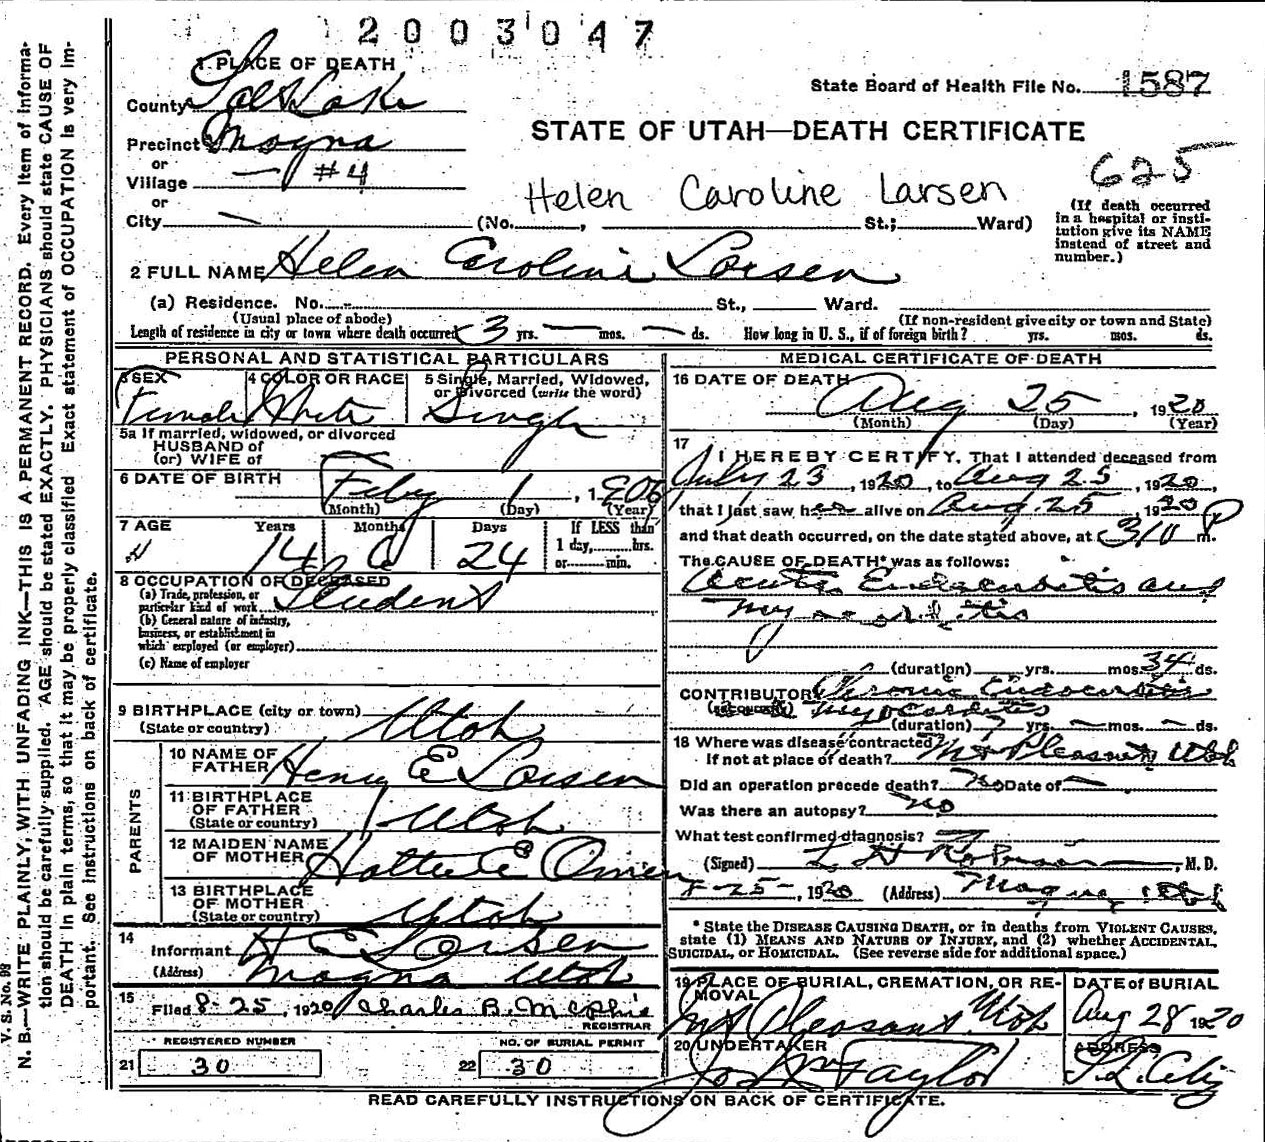 2003047
1 PLACE OF DEATH
State Board of Health File No. 1587
County Salt Lake
STATE OF UTAH—DEATH CERTIFICATE
Precinct Magna
or
Village — #4
625
or
Helen Caroline Larsen
City — (No. , St.; Ward)
(If death occurred in a hospital or institution give its NAME instead of street and number.)
2 FULL NAME Helen Caroline Larsen
(a) Residence. No. - St., Ward.
(Usual place of abode) (If non-resident give city or town and State)
Length of residence in city or town where death occurred 3 yrs. — mos. — ds. How long in U. S., if of foreign birth? yrs. mos. ds.
PERSONAL AND STATISTICAL PARTICULARS
3 SEX 4 COLOR OR RACE 5 Single, Married, Widowed, or Divorced (write the word)
Female White Single
5a If married, widowed, or divorced
HUSBAND of
(or) WIFE of
6 DATE OF BIRTH Feby 1, 1906
(Month) (Day) (Year)
7 AGE Years Months Days If LESS than
14 6 24 1 day, hrs.
or min.
8 OCCUPATION OF DECEASED
(a) Trade, profession, or
particular kind of work Student
(b) General nature of industry,
business, or establishment in
which employed (or employer)
(c) Name of employer
9 BIRTHPLACE (city or town)
(State or country) Utah
PARENTS
10 NAME OF
FATHER Henry E Larsen
11 BIRTHPLACE
OF FATHER
(State or country) Utah
12 MAIDEN NAME
OF MOTHER Hattie E
13 BIRTHPLACE
OF MOTHER
(State or country) Utah
14
Informant H E Larsen
(Address) Magna Utah
15
Filed 8-25, 1920 Charles B. McPhie
REGISTRAR
REGISTERED NUMBER NO. OF BURIAL PERMIT
21 30 22 30
MEDICAL CERTIFICATE OF DEATH
16 DATE OF DEATH
Aug 25, 1920
(Month) (Day) (Year)
17
I HEREBY CERTIFY, That I attended deceased from
July 23, 1920, to Aug 25, 1920,
that I last saw her alive on Aug. 25, 1920
and that death occurred, on the date stated above, at 310 P m.
The CAUSE OF DEATH* was as follows:
Acute Endocarditis and
Myocarditis
(duration) yrs. mos. 34 ds.
CONTRIBUTORY Chronic Endocarditis
(SECONDARY) Myocarditis
(duration) ? yrs. — mos. — ds.
18 Where was disease contracted
If not at place of death? Mt Pleasant Utah
Did an operation precede death? No Date of —
Was there an autopsy? No
What test confirmed diagnosis?
(Signed) M. D.
8-25-, 1920 (Address) Magna, Utah
* State the DISEASE CAUSING DEATH, or in deaths from VIOLENT CAUSES,
state (1) MEANS AND NATURE OF INJURY, and (2) whether ACCIDENTAL,
SUICIDAL, or HOMICIDAL. (See reverse side for additional space.)
19 PLACE OF BURIAL, CREMATION, OR REMOVAL DATE of BURIAL
Mt Pleasant Utah Aug 28 1920
20 UNDERTAKER ADDRESS
Taylor S. L. City
READ CAREFULLY INSTRUCTIONS ON BACK OF CERTIFICATE.
V. S. No.
N. B.—WRITE PLAINLY, WITH UNFADING INK—THIS IS A PERMANENT RECORD. Every item of information should be carefully supplied. AGE should be stated EXACTLY. PHYSICIANS should state CAUSE OF DEATH in plain terms, so that it may be properly classified. Exact statement of OCCUPATION is very important. See instructions on back of certificate.